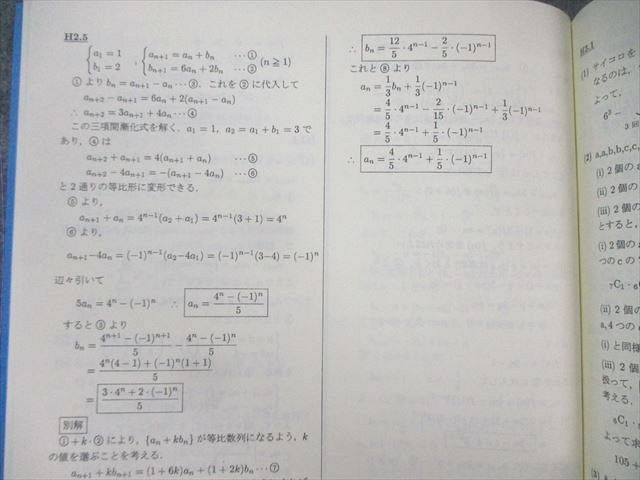 H2.5
{ a₁ = 1, b₁ = 2 , { aₙ₊₁ = aₙ + bₙ …① bₙ₊₁ = 6aₙ + 2bₙ …② (n ≧ 1)
①より bₙ = aₙ₊₁ − aₙ …③. これを②に代入して
aₙ₊₂ − aₙ₊₁ = 6aₙ + 2(aₙ₊₁ − aₙ)
∴ aₙ₊₂ = 3aₙ₊₁ + 4aₙ …④
この三項間漸化式を解く. a₁ = 1, a₂ = a₁ + b₁ = 3 で
あり, ④は
aₙ₊₂ + aₙ₊₁ = 4(aₙ₊₁ + aₙ) …⑤
aₙ₊₂ − 4aₙ₊₁ = −(aₙ₊₁ − 4aₙ) …⑥
と2通りの等比形に変形できる.
⑤より,
aₙ₊₁ + aₙ = 4ⁿ⁻¹(a₂ + a₁) = 4ⁿ⁻¹(3 + 1) = 4ⁿ
⑥より,
aₙ₊₁−4aₙ = (−1)ⁿ⁻¹(a₂−4a₁) = (−1)ⁿ⁻¹(3−4) = (−1)ⁿ
辺々引いて
5aₙ = 4ⁿ − (−1)ⁿ ∴ aₙ = (4ⁿ − (−1)ⁿ)/5
すると③より
bₙ = (4ⁿ⁺¹ − (−1)ⁿ⁺¹)/5 − (4ⁿ − (−1)ⁿ)/5
= (4ⁿ(4 − 1) + (−1)ⁿ(1 + 1))/5
= (3・4ⁿ + 2・(−1)ⁿ)/5
別解
①+k・②により, {aₙ + kbₙ} が等比数列になるよう, k
の値を選ぶことを考える.
aₙ₊₁ + kbₙ₊₁ = (1 + 6k)aₙ + (1 + 2k)bₙ …⑦
∴ bₙ = 12/5・4ⁿ⁻¹ − 2/5・(−1)ⁿ⁻¹
これと⑧より
aₙ = 1/3 bₙ + 1/3 (−1)ⁿ⁻¹
= 4/5・4ⁿ⁻¹ − 2/15・(−1)ⁿ⁻¹ + 1/3 (−1)ⁿ⁻¹
= 4/5・4ⁿ⁻¹ + 1/5・(−1)ⁿ⁻¹
∴ aₙ = 4/5・4ⁿ⁻¹ + 1/5・(−1)ⁿ⁻¹
H3.1
(1) サイコロを
なるのは,
よって,
6³ −
3回
(2) a,a,b,b,c,c,
(i) 2個の a
(ii) 2個の
(iii) 2個の
とすると,
(i) 2個の a
つの c の
₇C₁・₆
(ii) 2個の
a, 4つの
(i) と同様
(iii) 2個
扱って,
考える.
₆C₁・
よって求
105 +